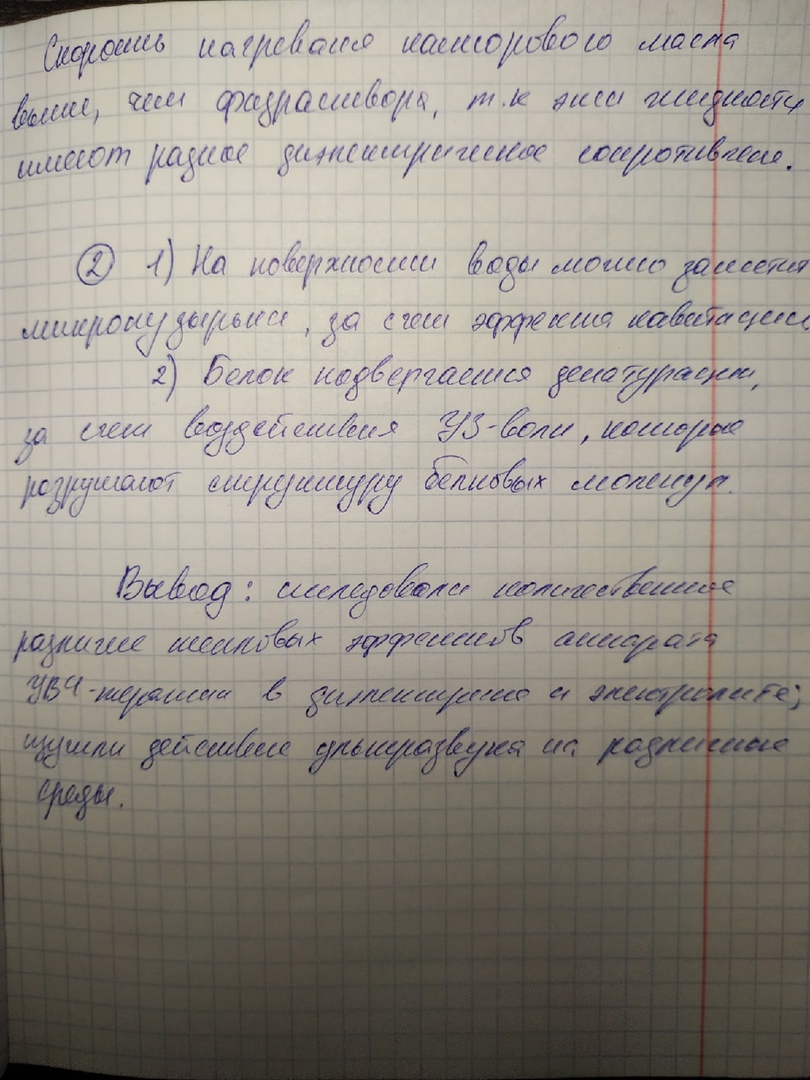 Скорость нагревания касторового масла
выше, чем физраствора, т.к эти жидкости
имеют разное диэлектрическое сопротивление.
② 1) На поверхности воды можно заметить
микропузырьки, за счет эффекта кавитации
2) Белок подвергается денатурации,
за счет воздействия УЗ-волн, которые
разрушают структуру белковых молекул.
Вывод: исследовали количественное
различие тепловых эффектов аппарата
УВЧ-терапии в диэлектрике и электролите;
изучили действие ультразвука на различные
среды.